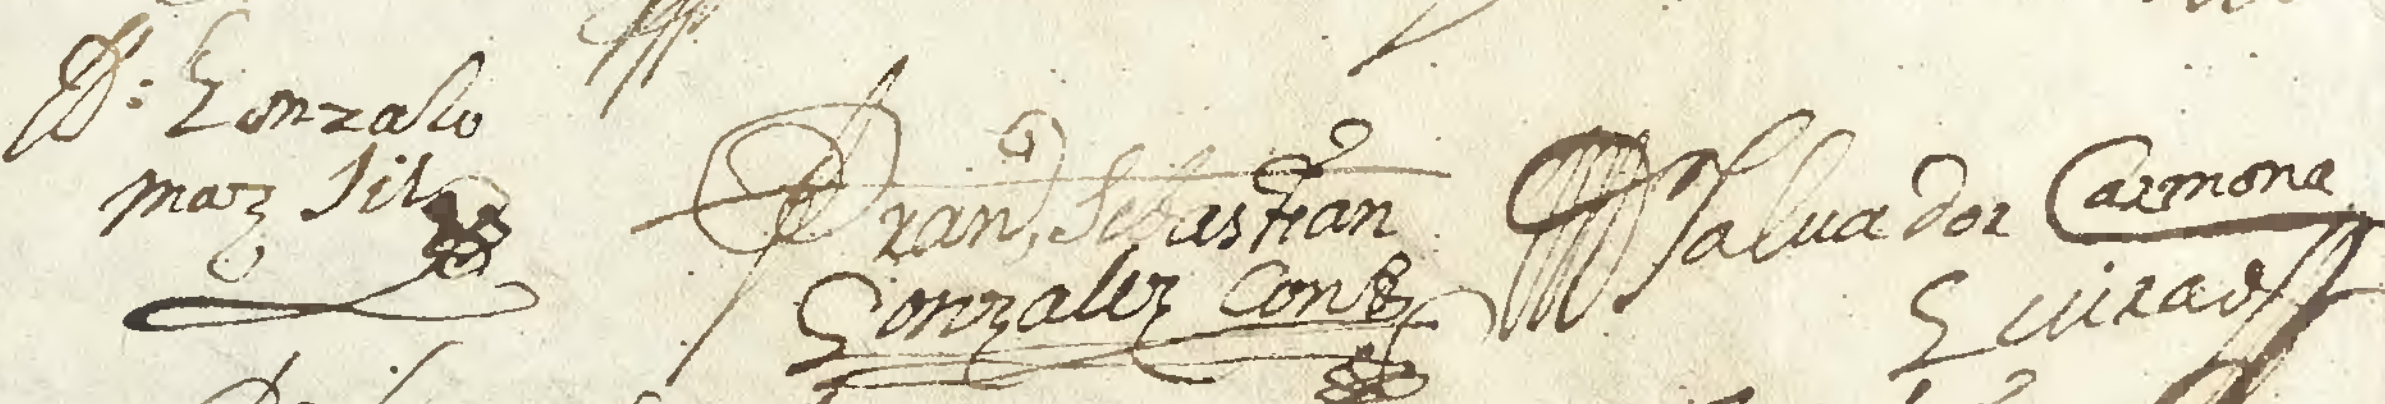 D.: Gonzalo
marz Gil
Fran,co Sebastian
Gonzalez Cont
Saluador Carmona
Guirado